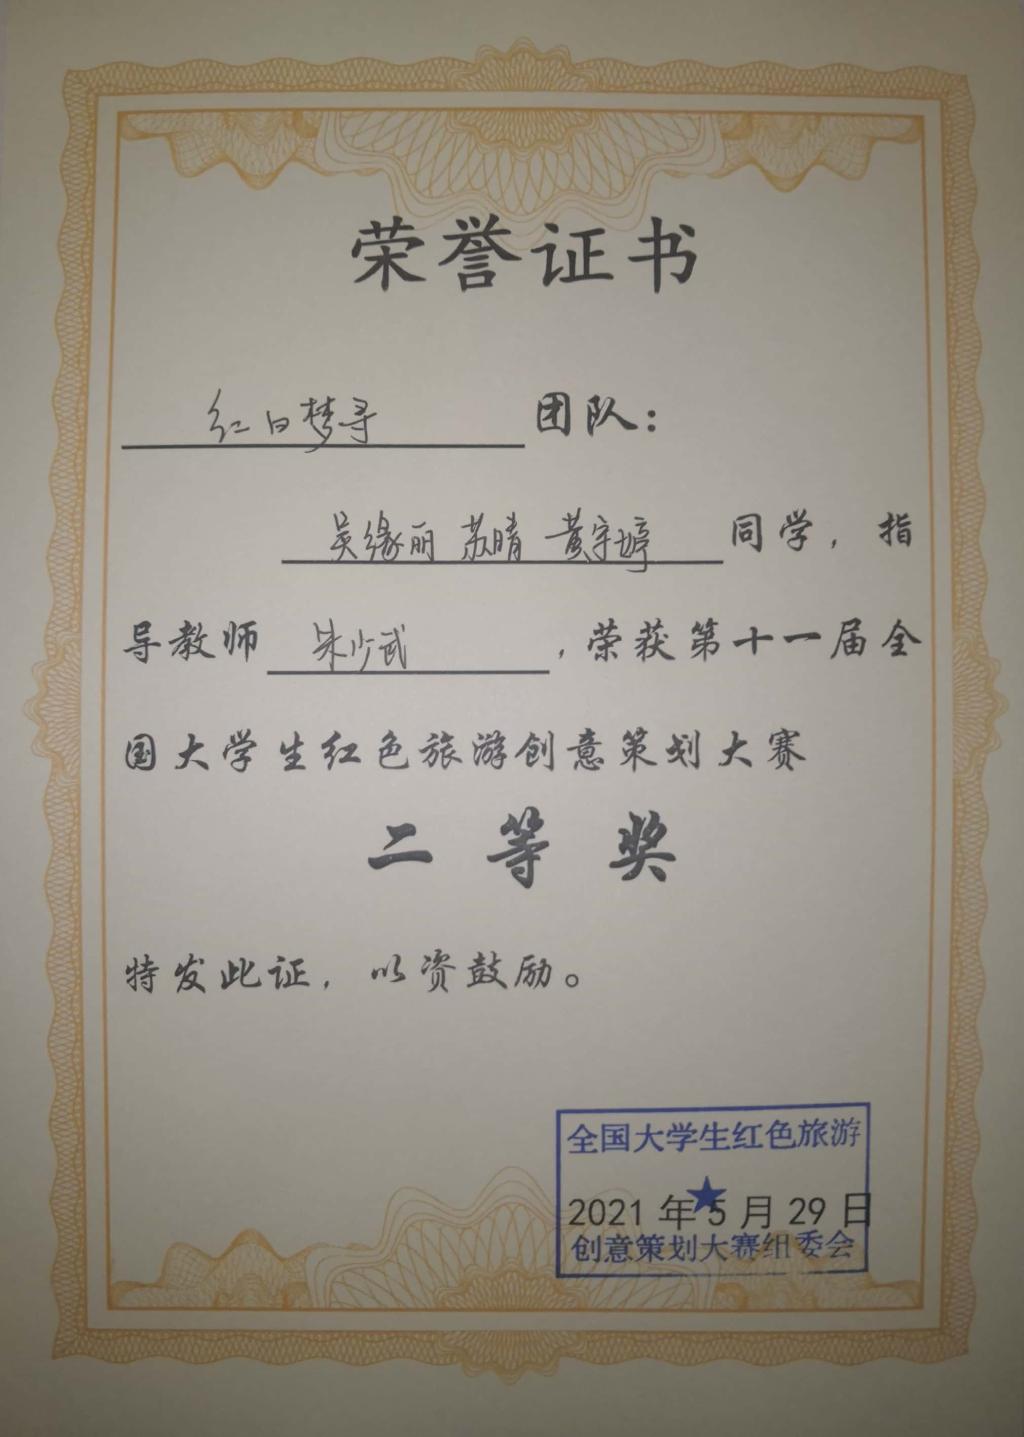 荣誉证书
红白梦寻 团队：
吴缘丽 苏晴 黄宇婷 同学，指
导教师 朱少武 ，荣获第十一届全
国大学生红色旅游创意策划大赛
二等奖
特发此证，以资鼓励。
全国大学生红色旅游
2021 年 5 月 29 日
创意策划大赛组委会